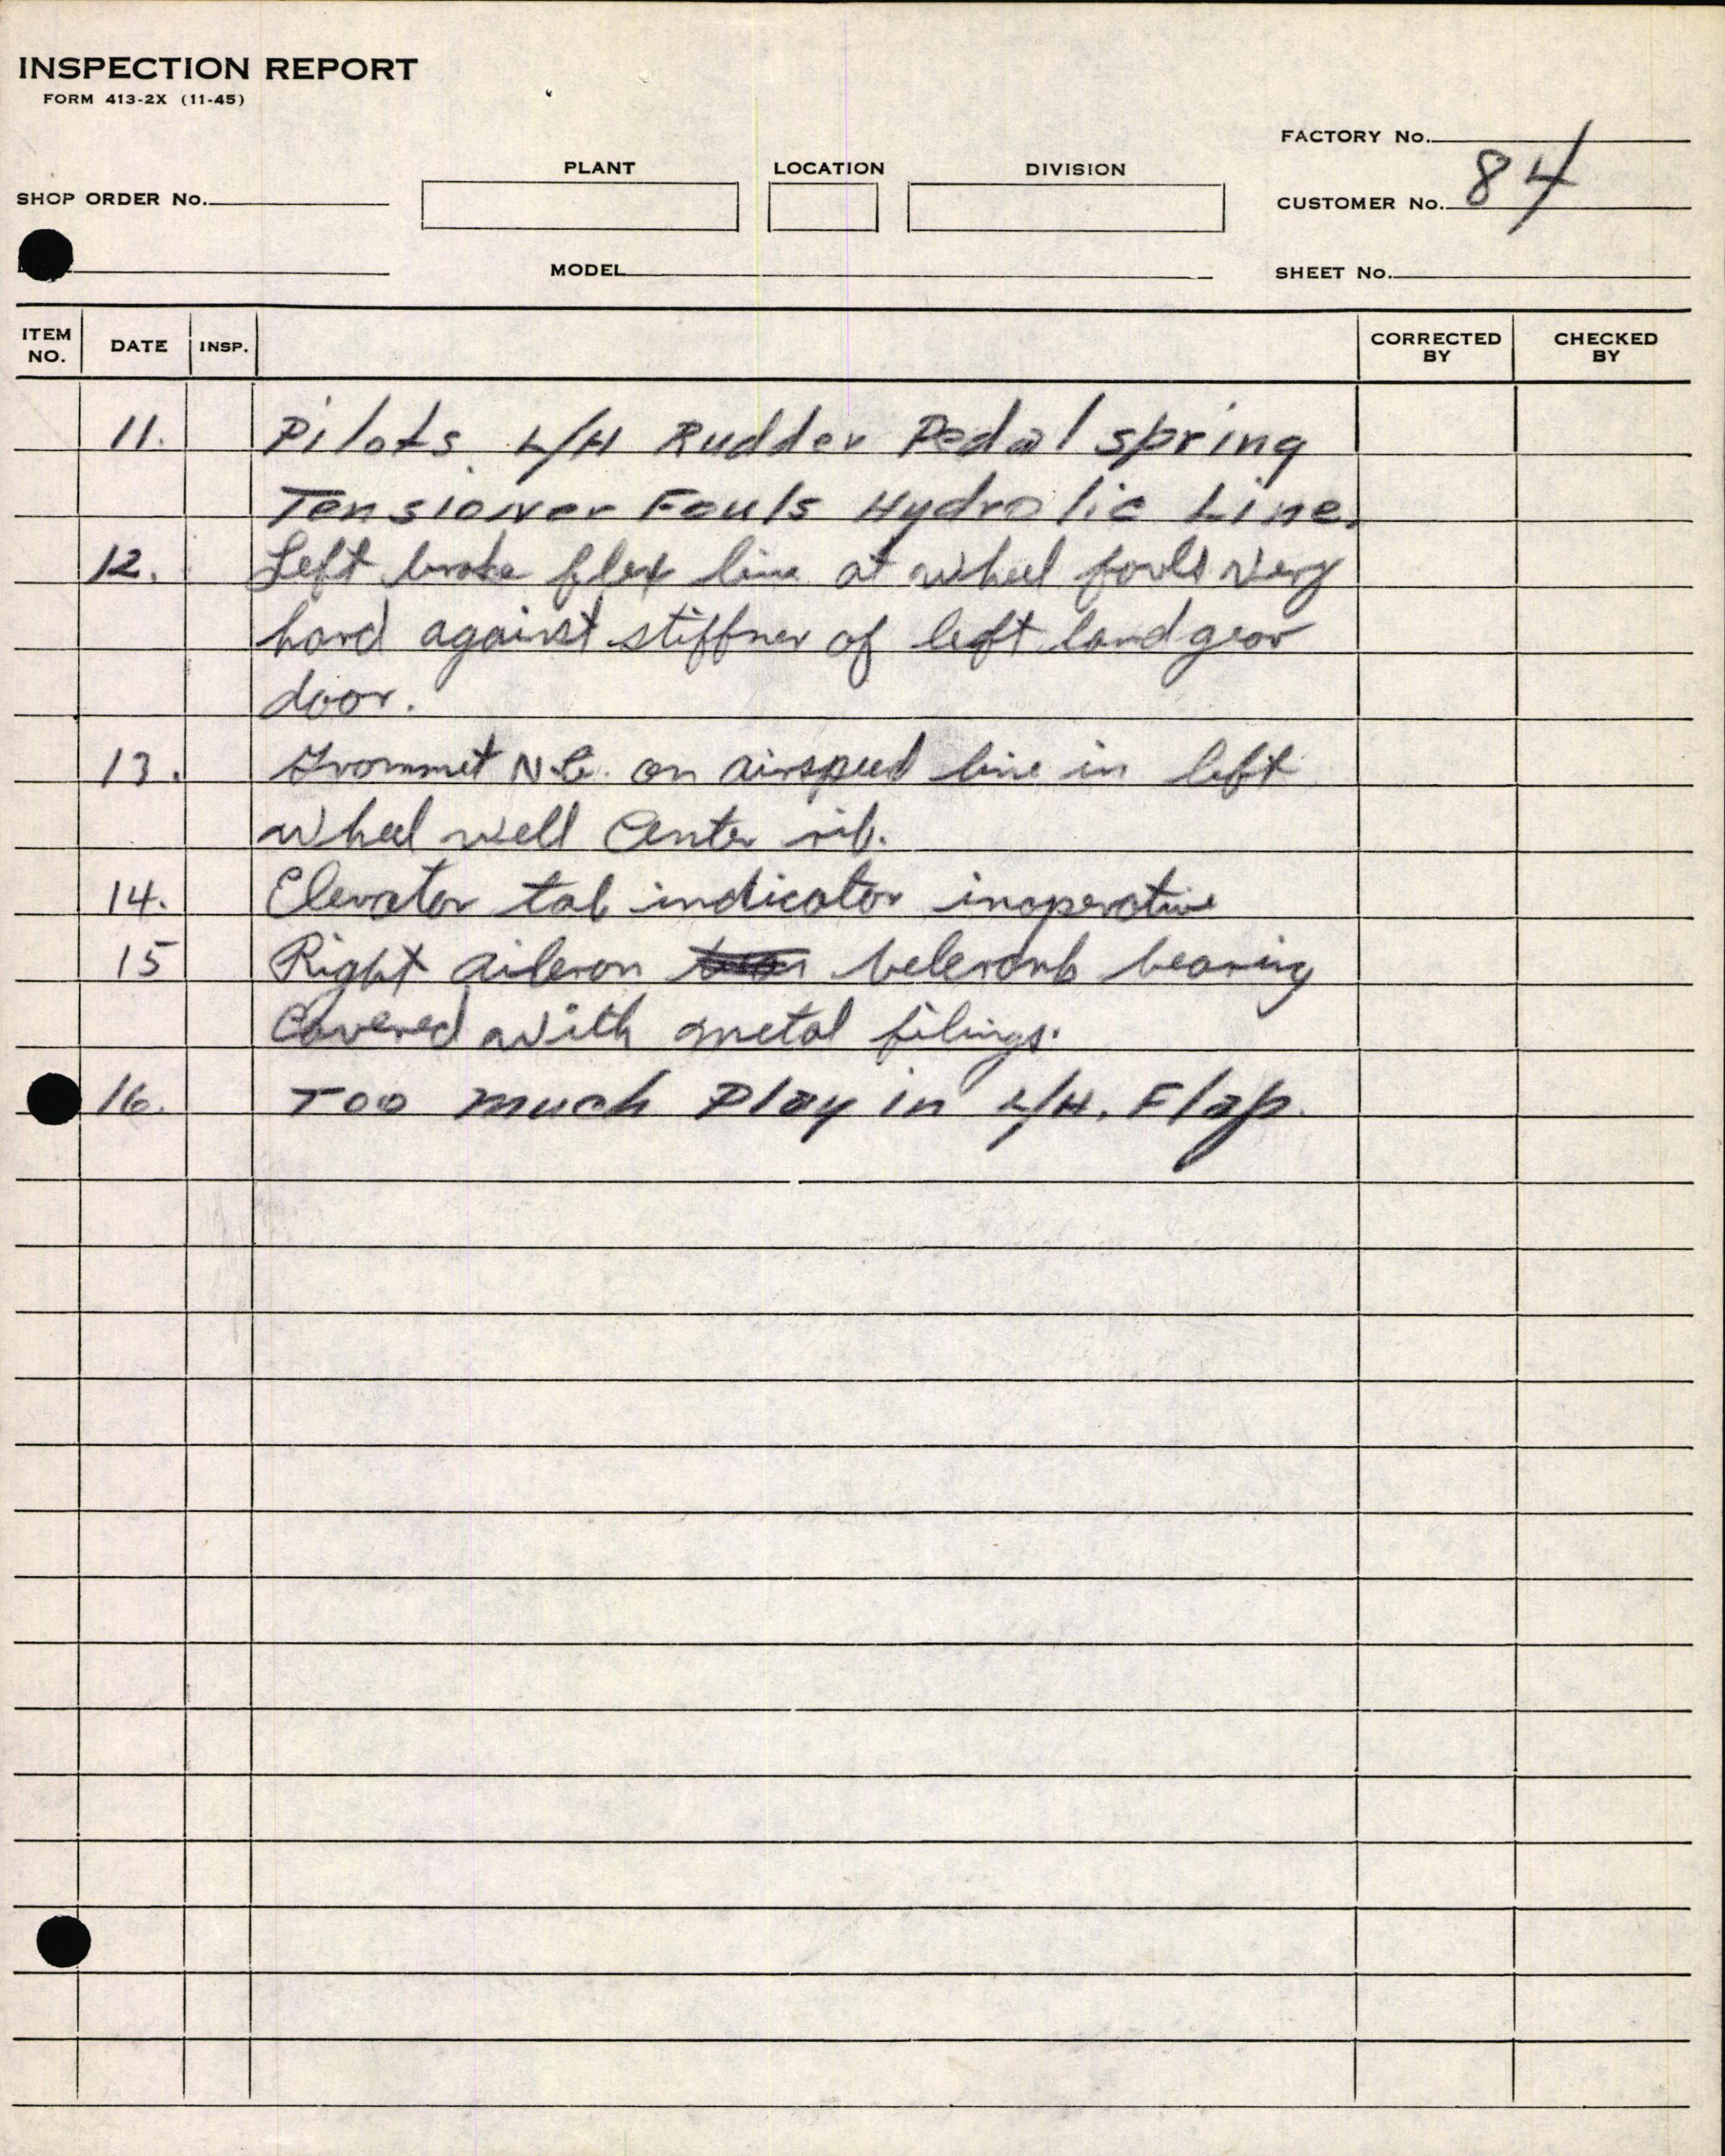 INSPECTION REPORT
FORM 413-2X (11-45)
FACTORY No.
PLANT LOCATION DIVISION
SHOP ORDER No.
CUSTOMER No. 84
MODEL
SHEET No.
ITEM NO. DATE INSP. CORRECTED BY CHECKED BY
11. Pilots L/H Rudder Pedal spring
Tensioner Fouls Hydrolic Line.
12. Left brake flex line at wheel fouls very
hard against stiffner of left land gear
door.
13. Grommet N.G. on airspeed line in left
wheel well Center rib.
14. Elevator tab indicator inoperative
15 Right aileron belcronb bearing
Covered with metal filings.
16. Too much Play in L/H. Flap.